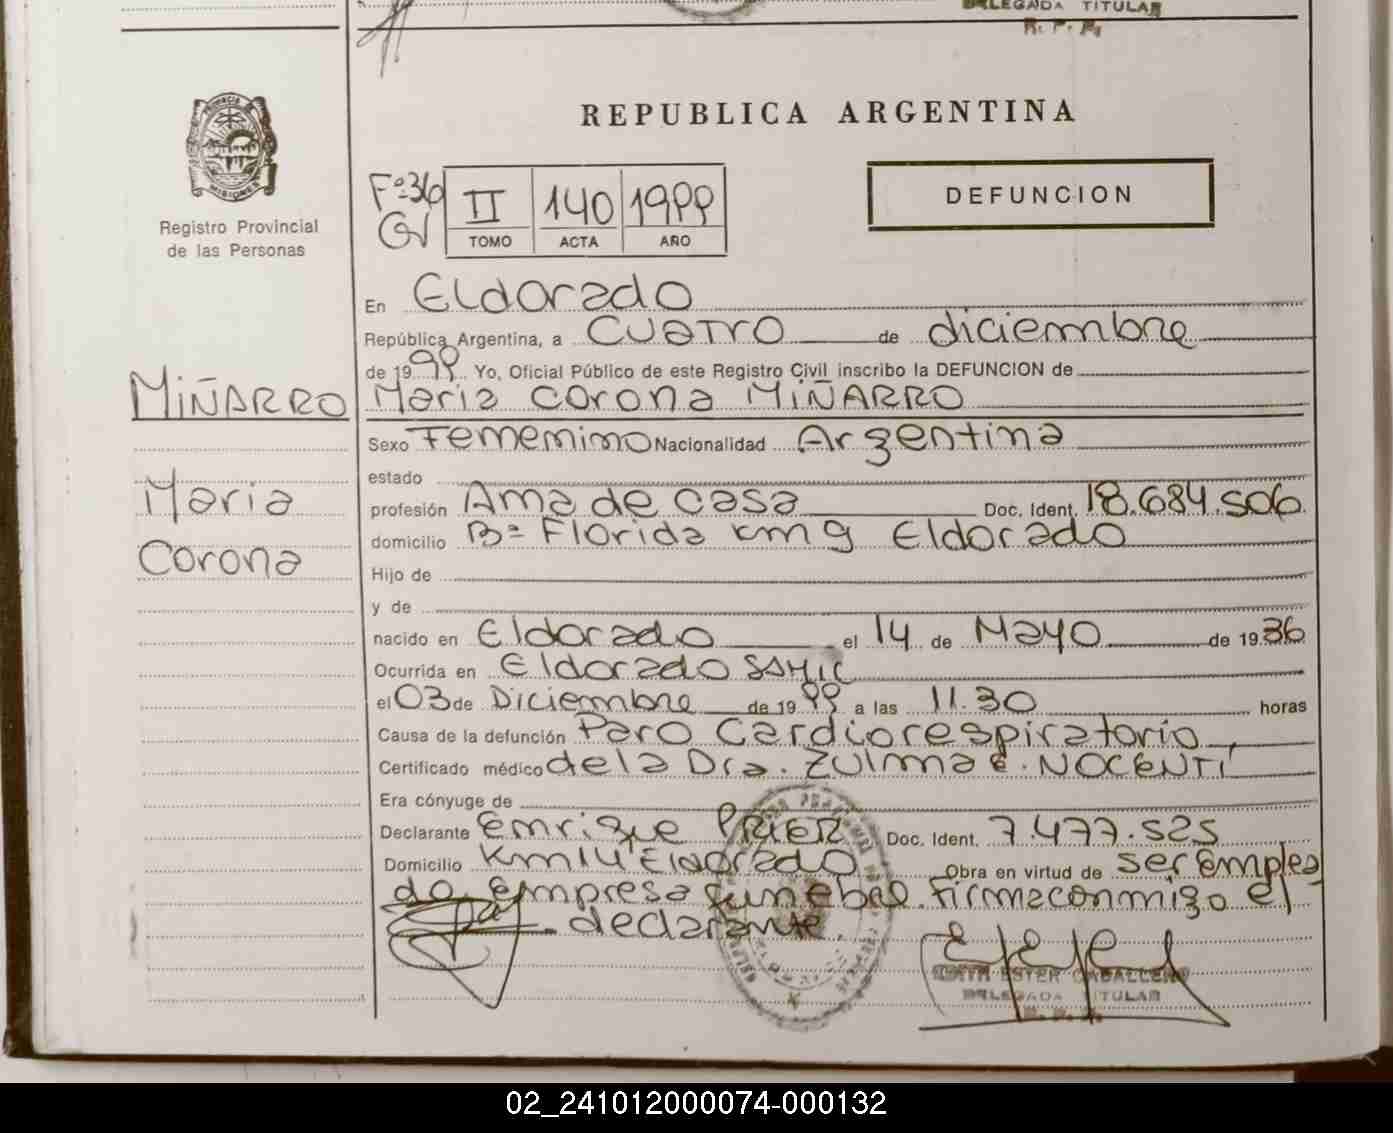 DELEGADA TITULAR
R. P. P.
REPUBLICA ARGENTINA
PROVINCIA DE
MISIONES
Registro Provincial
de las Personas
Fº 36
II 140 1999
TOMO ACTA AÑO
DEFUNCION
En Eldorado
República Argentina, a CUATRO de diciembre
de 1999 Yo, Oficial Público de este Registro Civil inscribo la DEFUNCION de
MIÑARRO
Maria Corona MIÑARRO
Sexo Femenino Nacionalidad Argentina
estado
Maria
profesión Ama de casa Doc. Ident. 18.684.506
Corona
domicilio Bº Florida Km 9 Eldorado
Hijo de
y de
nacido en Eldorado el 14 de Mayo de 1936
Ocurrida en Eldorado SAMIC
el 03 de Diciembre de 1999 a las 11.30 horas
Causa de la defunción Paro Cardiorespiratorio,
Certificado médico de la Dra. Zulma E. NOCENTI
Era cónyuge de
Declarante Enrique PRIER Doc. Ident. 7.477.525
Domicilio Km 14 Eldorado Obra en virtud de ser emplea
do empresa funebre. Firma conmigo el
declarante.
EDITH ESTER CABALLERO
DELEGADA TITULAR
R. P. P.
02_241012000074-000132